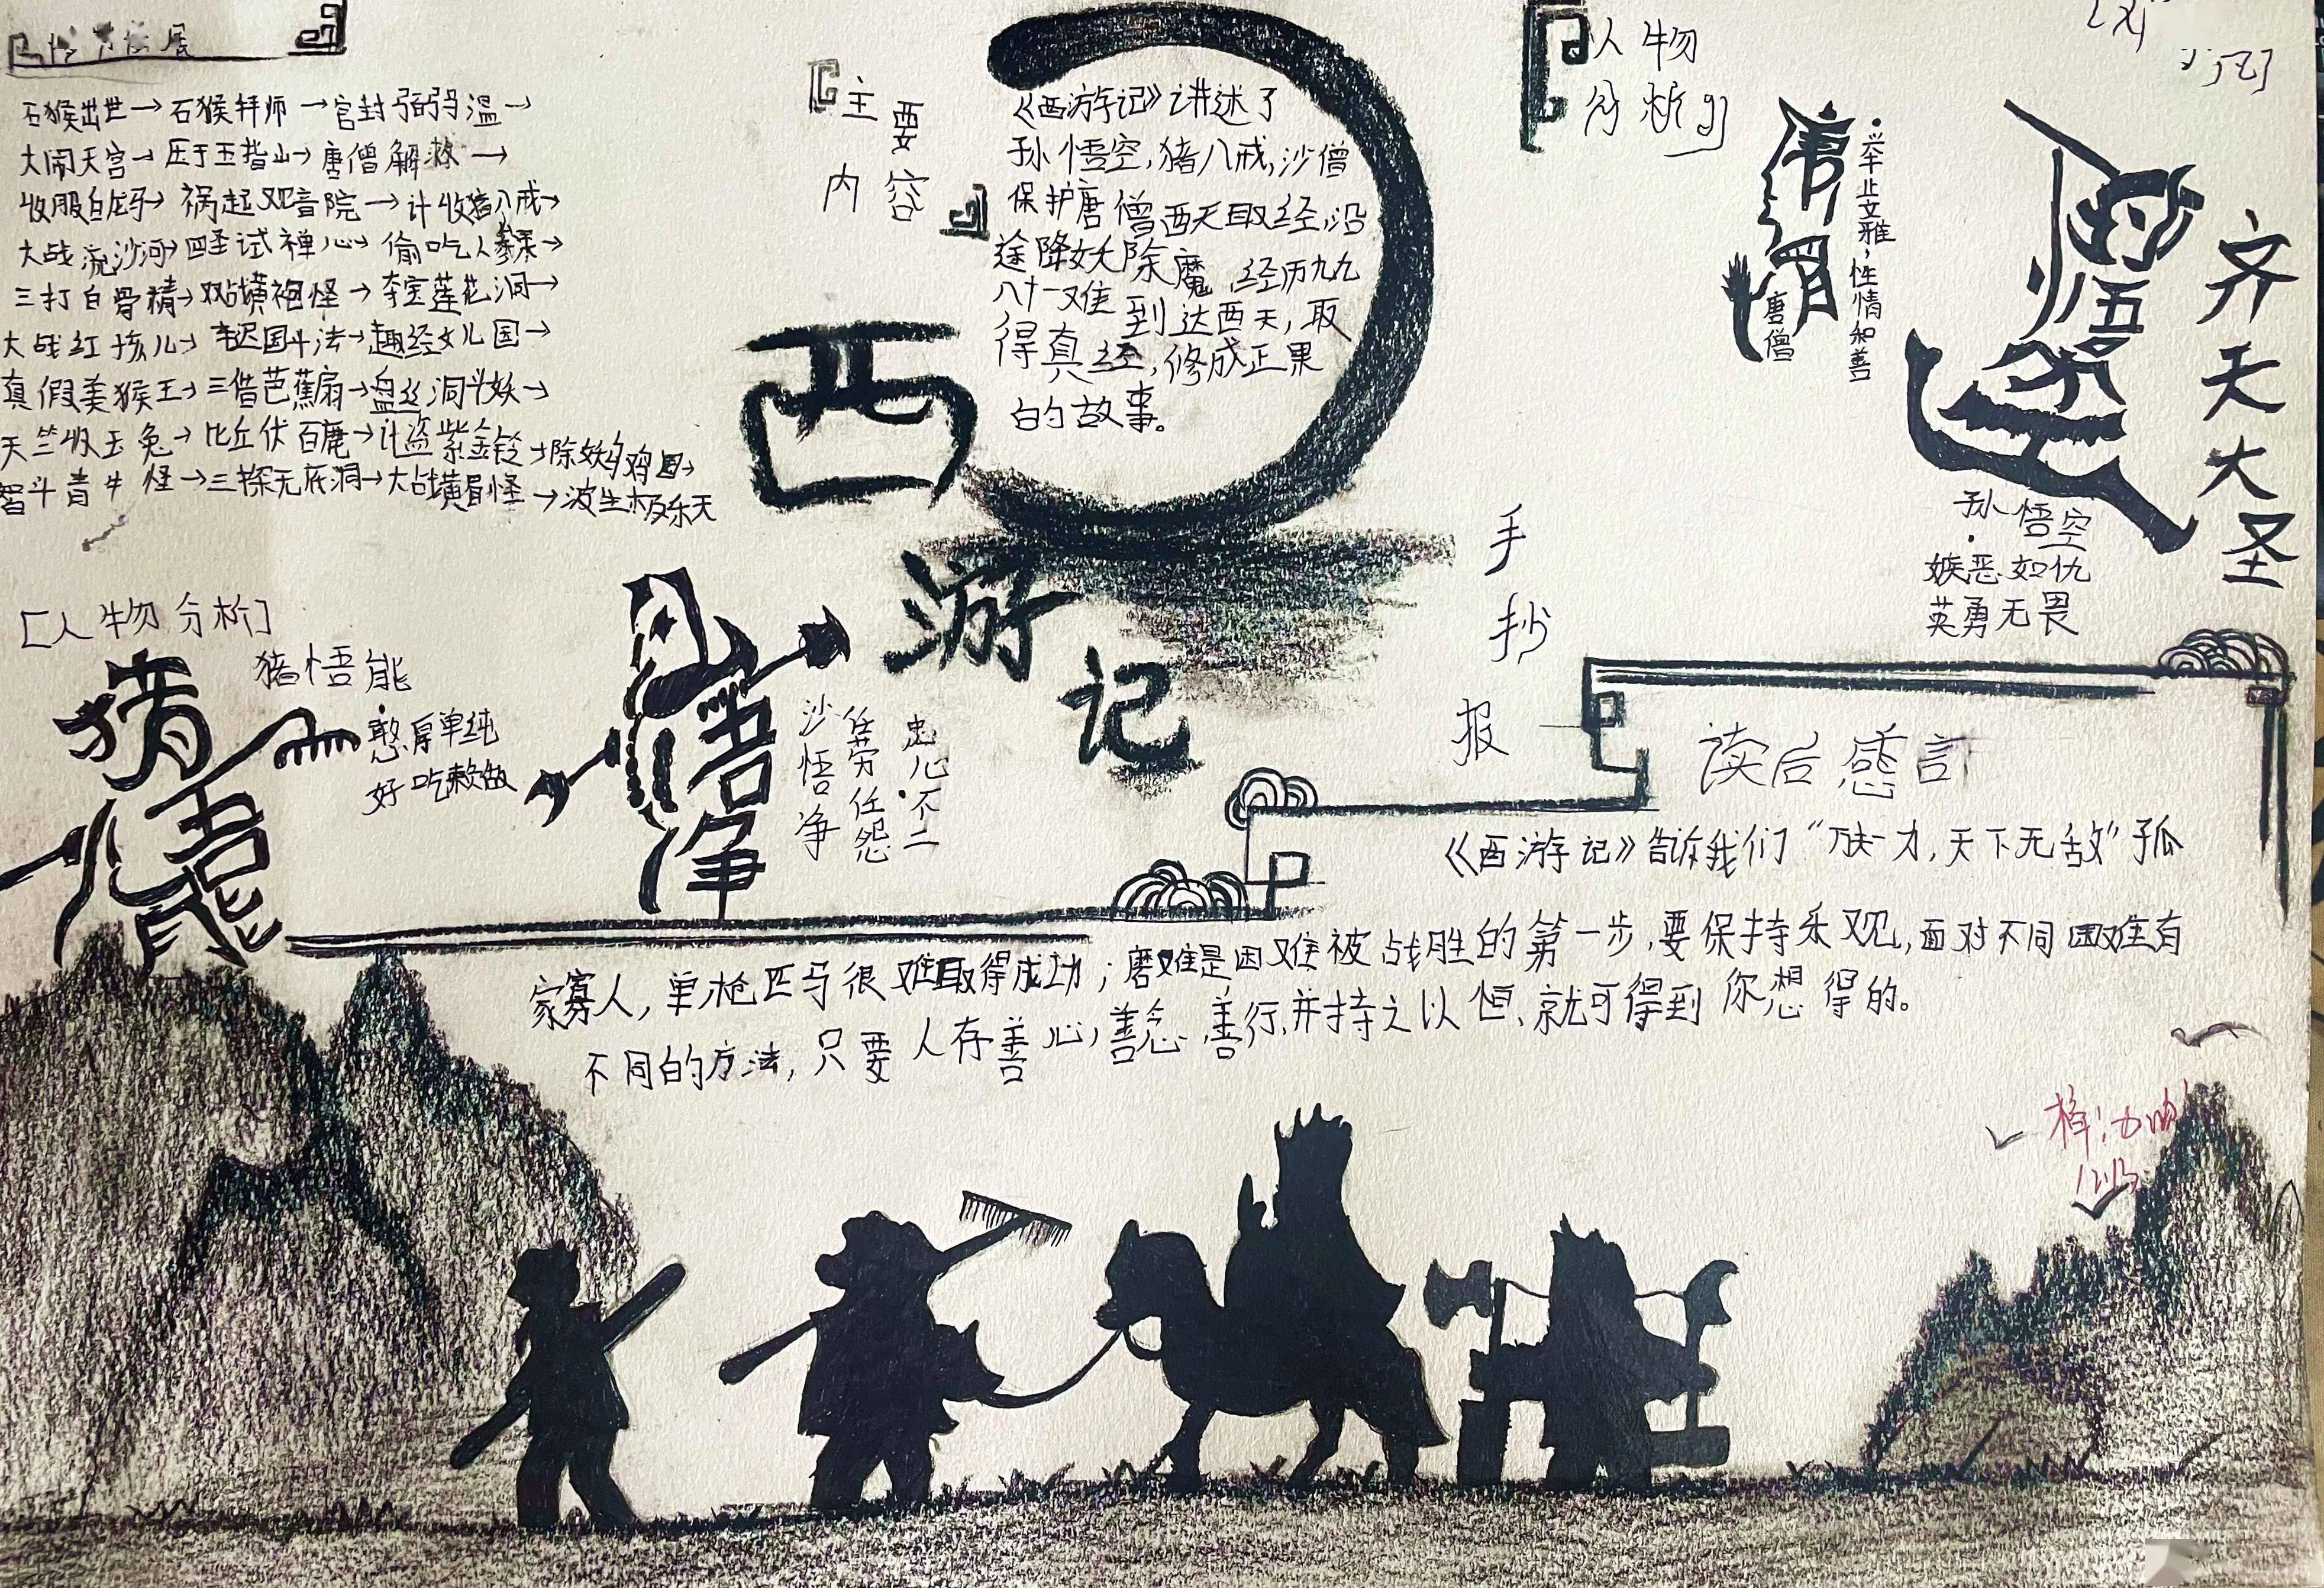 石猴出世→石猴拜师→官封弼弼温→
大闹天宫→压于五指山→唐僧解救→
收服白龙马→祸起观音院→计收猪八戒→
大战流沙河→四圣试禅心→偷吃人参果→
三打白骨精→双战黄袍怪→李宝莲花洞→
大战红孩儿→车迟国斗法→趣经女儿国→
真假美猴王→三借芭蕉扇→盘丝洞斗妖→
天竺收玉兔→比丘伏百鹿→计盗紫金铃→除妖乌鸡国→
智斗青牛怪→三探无底洞→大战黄眉怪→波生极乐天
[主要
内容]
《西游记》讲述了
孙悟空,猪八戒,沙僧
保护唐僧西天取经,沿
途降妖除魔,经历九九
八十一难到达西天,取
得真经,修成正果
的故事。
西游记
手抄报
[人物
分析]
唐僧
·举止文雅,性情和善
悟空
齐天大圣
孙悟空
·嫉恶如仇
英勇无畏
[人物分析]
猪悟能
猪悟能
·憨厚单纯
好吃懒做
悟净
沙悟净
任劳任怨
忠心不二
读后感言
《西游记》告诉我们“万夫一力,天下无敌”孤
家寡人,单枪匹马很难取得成功;磨难是困难被战胜的第一步,要保持乐观,面对不同困难有
不同的方法,只要人存善心,善念,善行,并持之以恒,就可得到你想得的。